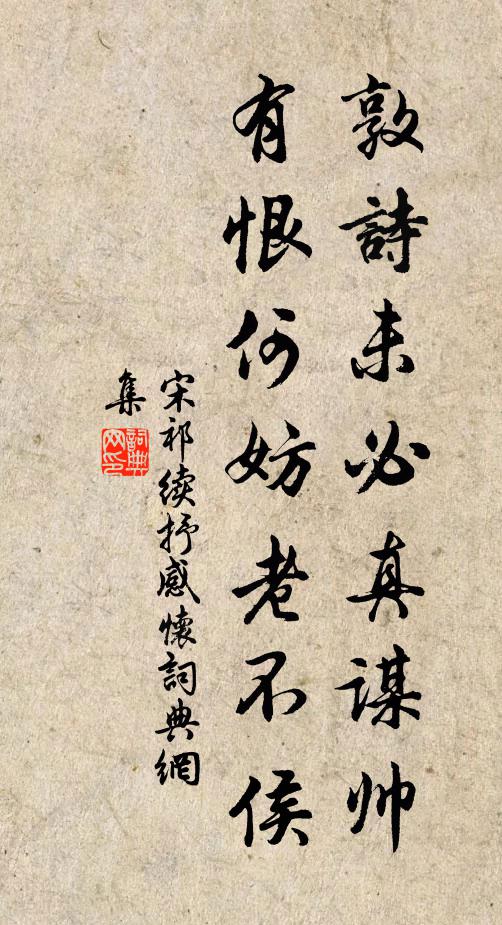 敦詩未必真謀帅
有恨何妨老不侯
宋祁续抒感懷詞典網
集
詞典网印